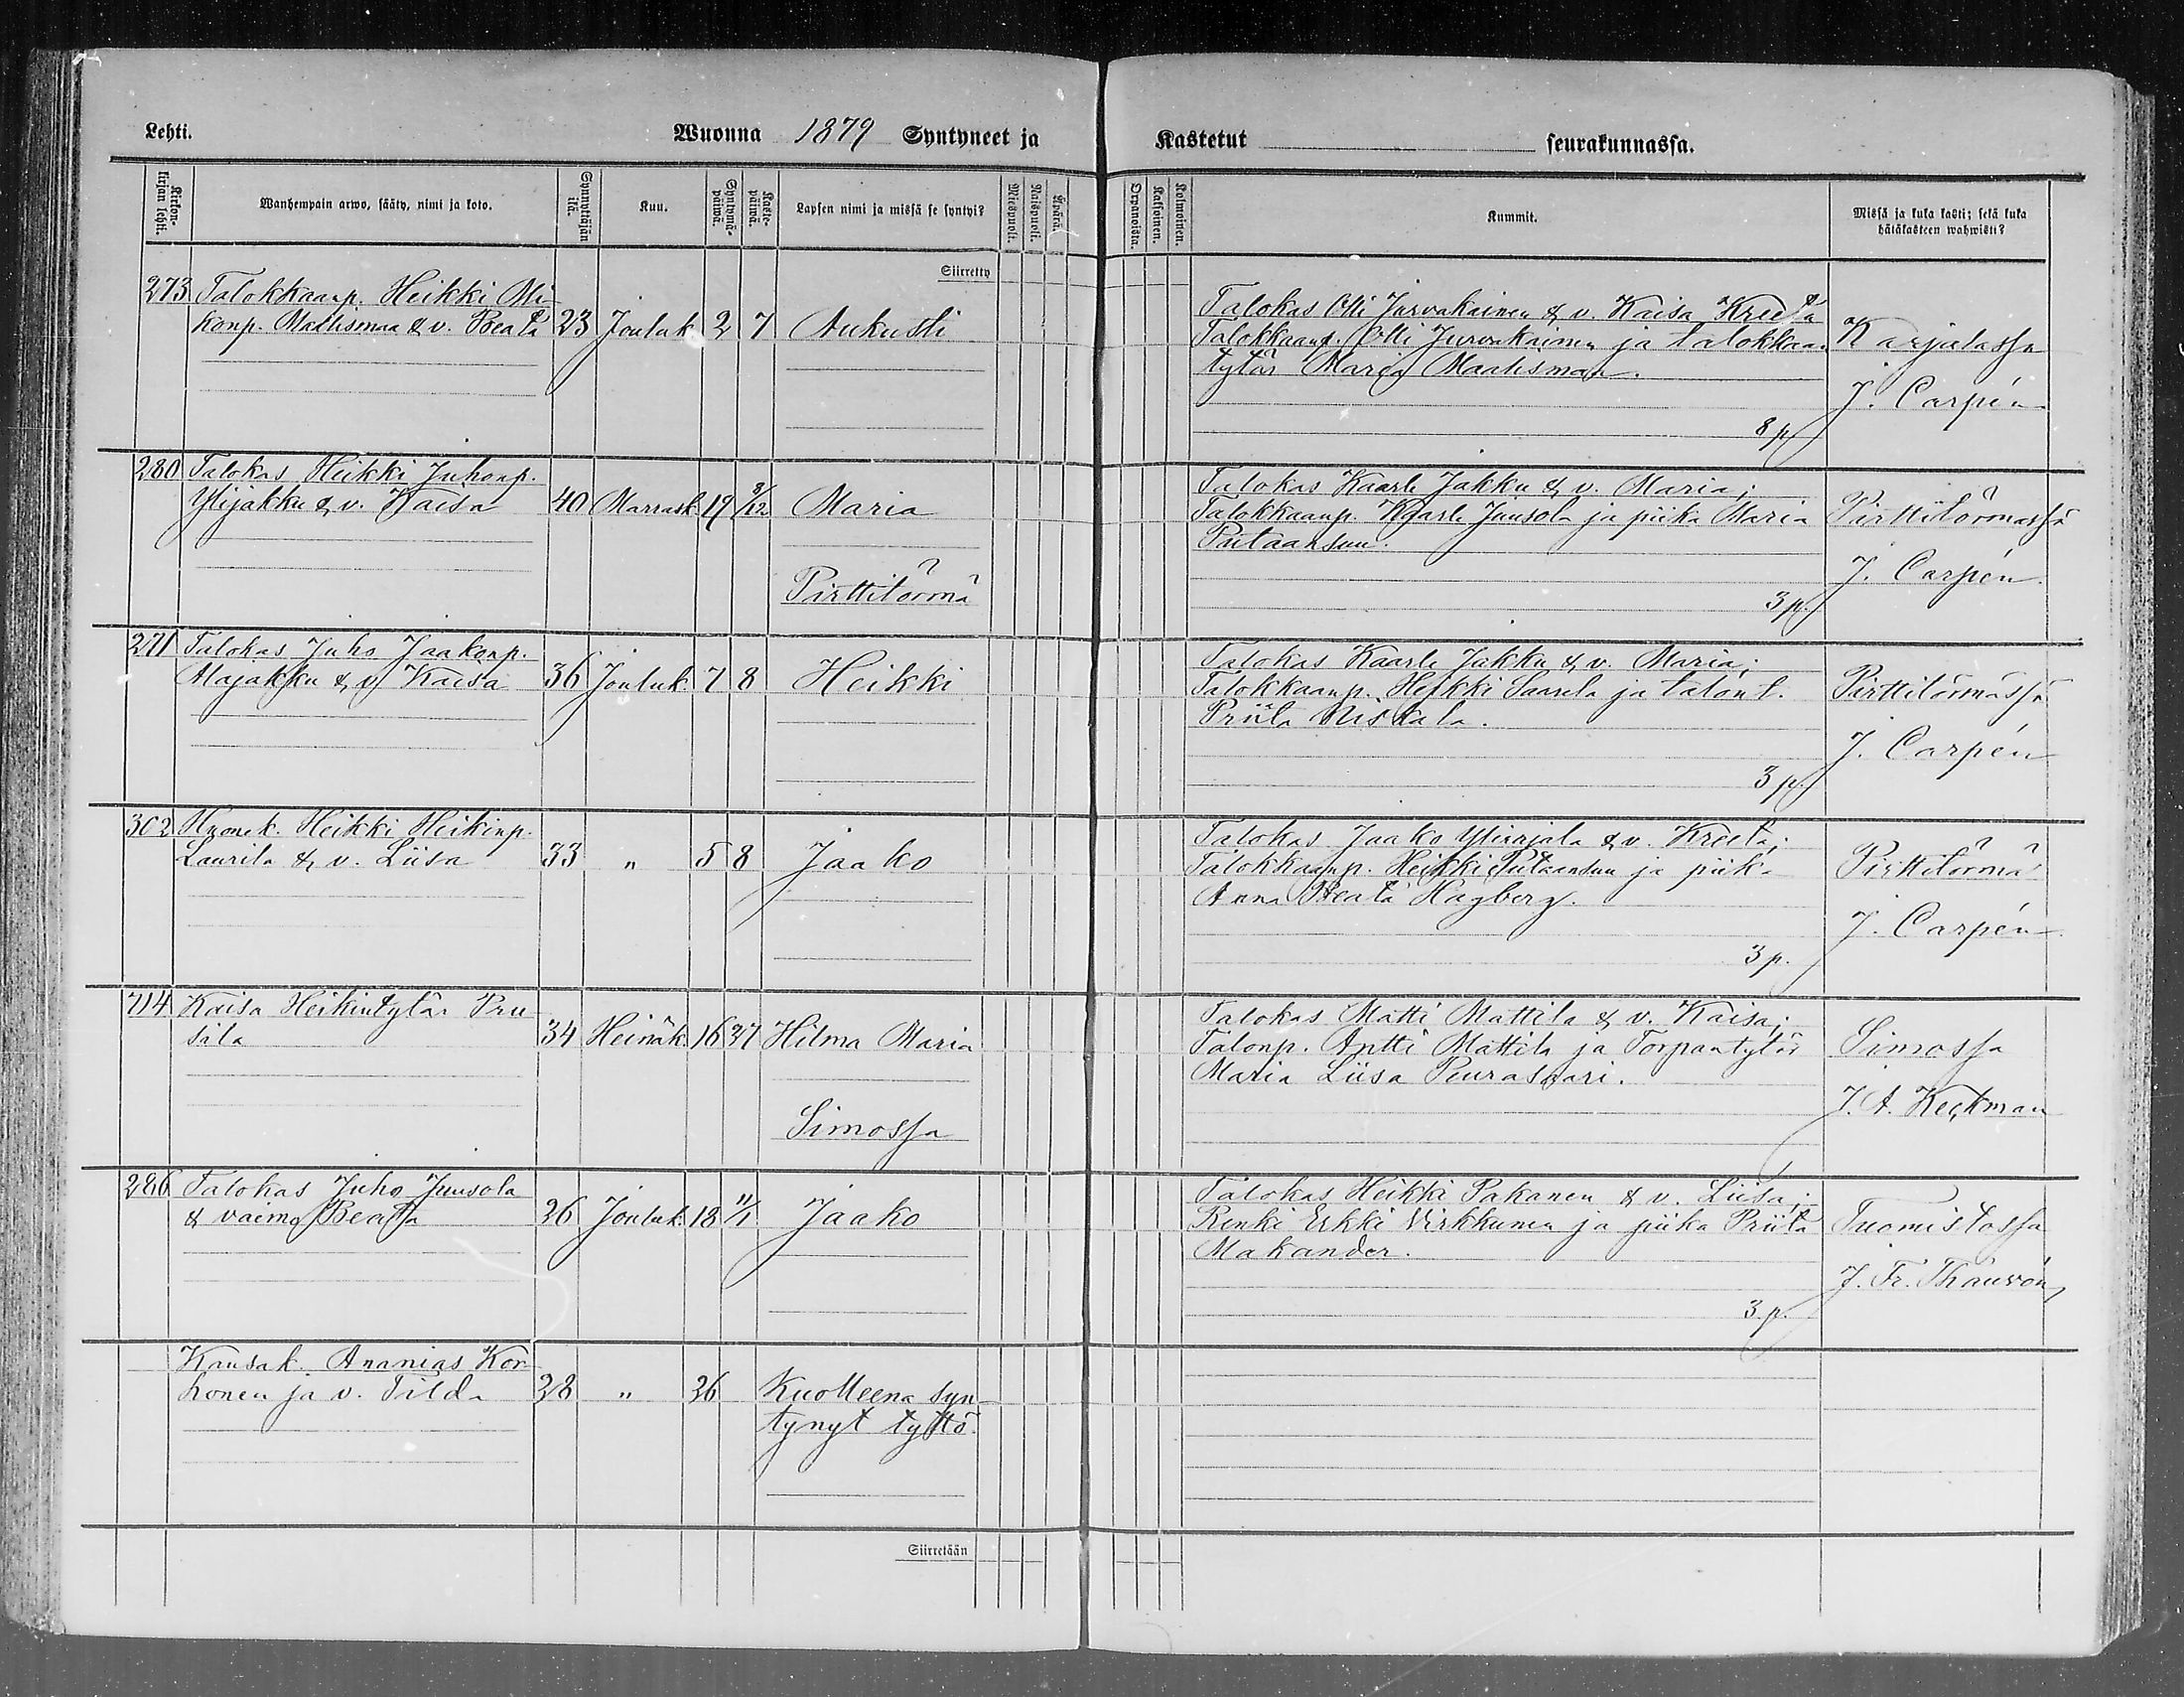 Lehti.
Wuonna 1879 Syntyneet ja
Kastetut seurakunnassa.
Kirkon-
kirjan lehti.
Wanhempain arwo, sääty, nimi ja koto.
Synnyttäjän
ikä.
Kuu.
Syntymä-
päiwä.
Kaste-
päiwä.
Lapsen nimi ja missä se syntyi?
Miespuoli.
Naispuoli.
Äpärä.
Orpanoista.
Kaksoinen.
Kolmoinen.
Kummit.
Missä ja kuka kasti; sekä kuka
hätäkasteen wahwisti?
Siirretty
273 Talokkaanp. Heikki Mi-
konp. Maahismaa & v. Beata 23 Jouluk. 2 7 Aukusti
Talokas Olli Jurvakainen & v. Kaisa Kreeta
Talokkaanp. Olli Jurvakainen ja talokkaan
tytär Maria Maahismaa.
8 p
Karjalassa
J. Carpén
280 Talokas Heikki Juhonp.
Ylijakku & v. Kaisa 40 Marrask. 19 8/12 Maria
Pirttitörmä
Talokas Kaarle Jakku & v. Maria;
Talokkaanp. Kaarle Juusola ja piika Maria
Putaansuu.
3 p.
Pirttitörmässä
J. Carpén.
271 Talokas Juho Jaakonp.
Alajakku & v. Kaisa 36 Jouluk. 7 8 Heikki
Talokas Kaarle Jakku & v. Maria;
Talokkaanp. Heikki Saarela ja talon t.
Priita Niskala.
3 p.
Pirttitörmässä
J. Carpén
302 Huonek. Heikki Heikinp.
Laurila & v. Liisa 33 " 5 8 Jaako
Talokas Jaako Yliviaja & v. Kreeta;
Talokkaanp. Heikki Putaansuu ja piik.
Anna Beata Hagberg.
3 p.
Pirttitörmä
J. Carpén
714 Kaisa Heikintytär Pru-
sila 34 Heinäk. 16 27 Hilma Maria
Simossa
Talokas Matti Mattila & v. Kaisa;
Talonp. Antti Mattila ja Torpantytär
Maria Liisa Peurasaari.
Simossa
J. A. Keckman
286 Talokas Juho Juusola
& vaimo Beata 26 Jouluk. 18 11/1 Jaako
Talokas Heikki Pakanen & v. Liisa;
Renki Erkki Virkkunen ja piika Priita
Makander.
3 p.
Tuomistossa
J. Fr. Thauvón
Kansak. Ananias Kor-
honen ja v. Tilda 28 " 26 Kuolleena syn-
tynyt tyttö.
Siirretään